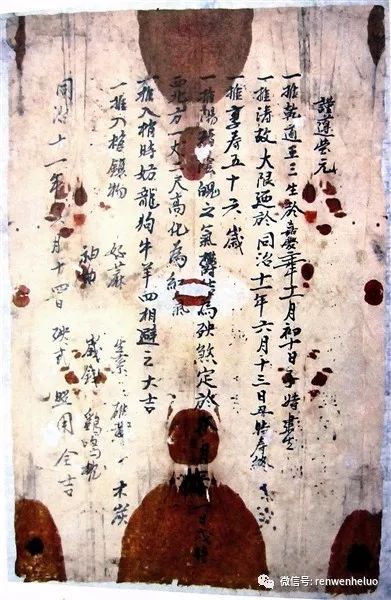 謹遵堂元
一推乾道王三生於嘉慶年十二月初十日子時
一推清故大限逝於同治十一年六月十三日丑時壽終
一推享寿五十六歲
一推陽魄之氣為殃煞定於月日時
西北方一丈二尺高化為紅氣
一推入棺時妨龍狗牛羊四相避之大吉
一推入棺鎮物 好蔴 生素 雄黄 木炭
神曲 鹹鏡 鷄鳴枕
同治十一年六月十四日 殃式照用全吉
微信号: renwenheluo